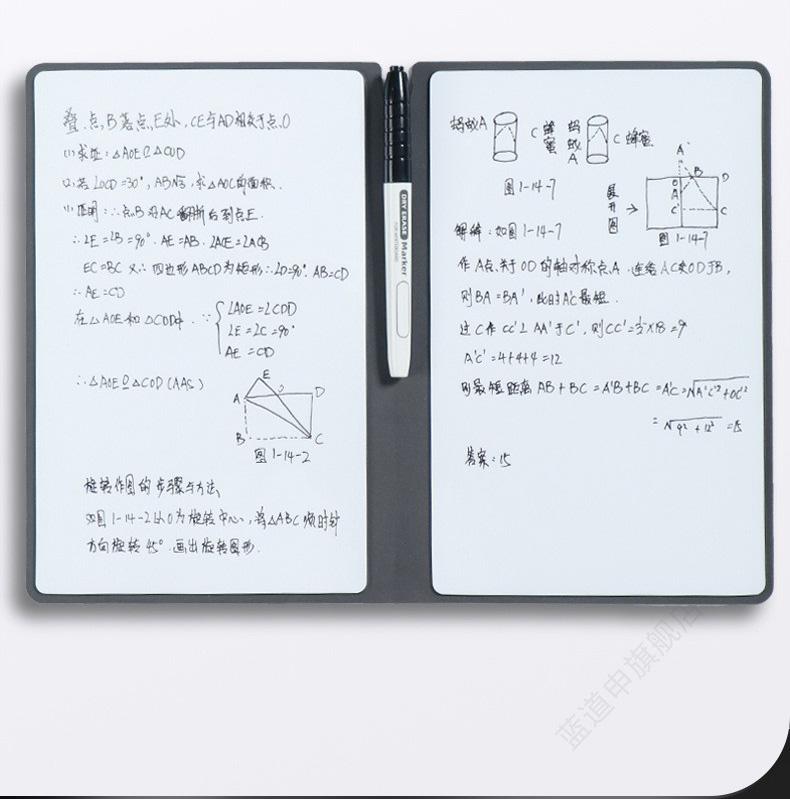 叠.点B落点E处,CE与AD相交于点O
(1)求证:△AOE≌△COD
(2)若∠OCD=30°,AB=√3,求△AOC的面积.
(1)证明:∵点B沿AC翻折后到点E.
∴∠E=∠B=90°.AE=AB.∠ACE=∠ACB
EC=BC 又∵四边形ABCD为矩形∴∠D=90°.AB=CD
∴AE=CD
在△AOE和△COD中.∵
∠AOE=∠COD
∠E=∠C=90°
AE=CD
∴△AOE≌△COD(AAS)
E
A
O
D
B
C
图1-14-2
旋转作图的步骤与方法、
如图1-14-2以O为旋转中心,将△ABC顺时针
方向旋转45°.画出旋转图形.
DRY ERASE Marker
蚂蚁A
C蜂蜜
蚂蚁A
C蜂蜜
图1-14-7
展开图
→
A'
B
D
O
A
C'
C
图1-14-7
解释:如图1-14-7
作A点关于OD的轴对称点A.连结AC交OD于B,
则BA=BA',此时A'C最短.
过C作CC'⊥AA'于C',则CC'=½×18=9
A'C'=4+4+4=12
则最短距离AB+BC=A'B+BC=A'C=√A'C'²+CC'²
=√9²+12²=15
答案:15
蓝道申旗舰店